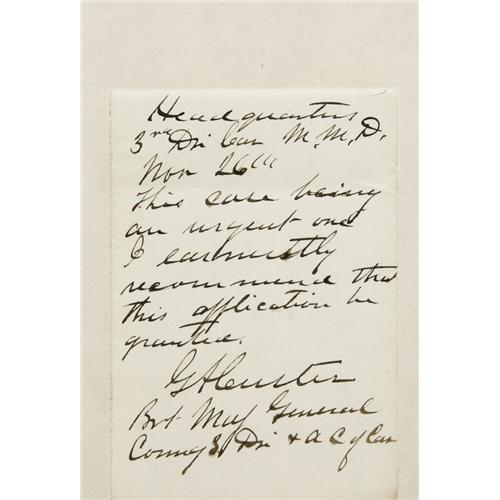 Headquarters
3rd Div Cav M.M.D.
Nov 26th
This case being
an urgent one
I earnestly
recommend that
this application be
granted.
GACuster
Bvt Maj General
Comdg 3 Div & A C of Cav